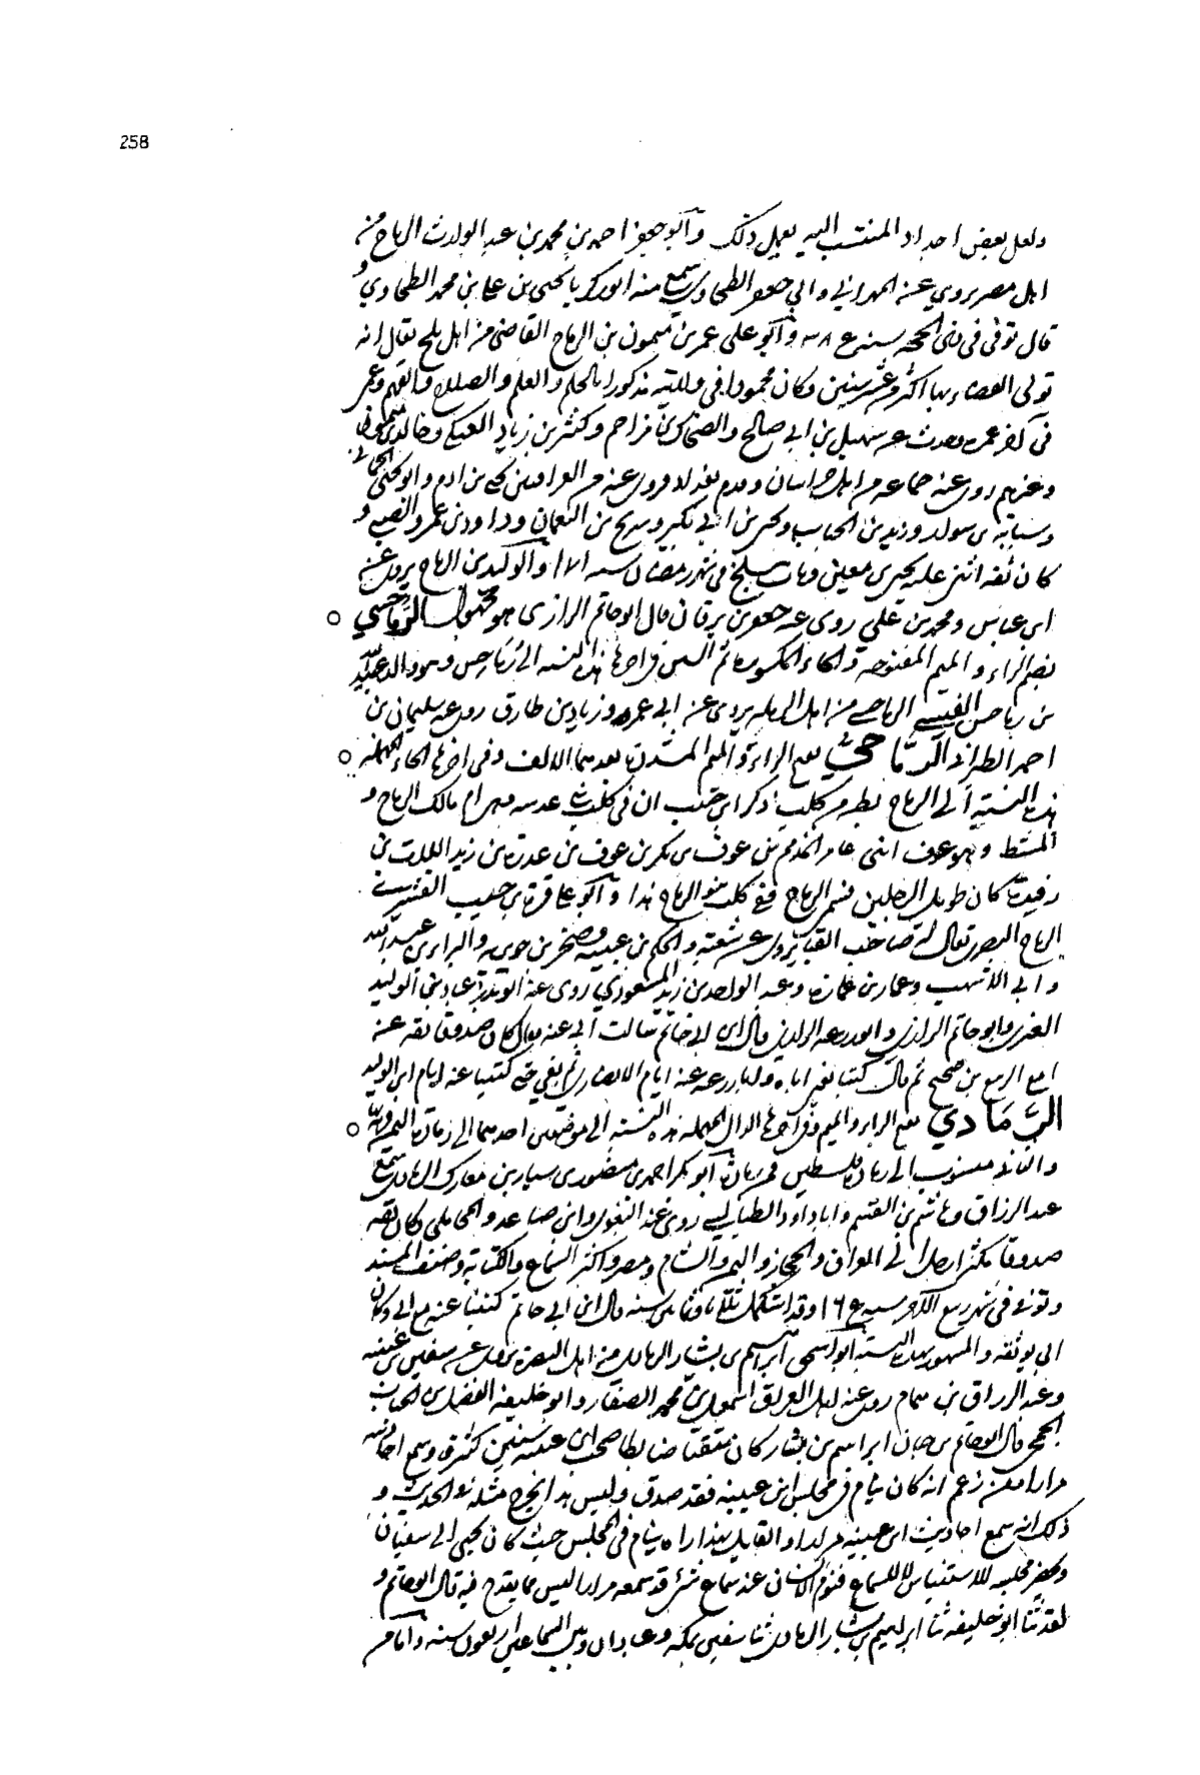 258
ولعل بعض اجداد المنتسب اليه يعمل ذلك وابو جعفر احمد بن محمد بن عبد الوارث الرماح من
اهل مصر يروي عنه المهراني وابي جعفر الطحاوي سمع منه ابو زكريا يحيى بن علي بن محمد الطحاوي و
قال توفي في ذي الحجة سنة وابو علي عمر بن ميمون بن الرماح القاضي من اهل بلخ يقال انه
تولى القضاء بها اكثر من عشرين سنين وكان محمودا في ولايته مذكورا بالحلم والعلم والصلاح والفهم وعمي
في آخر عمره وحدث عن سهيل بن ابي صالح والضحاك بن مزاحم وكثير بن زياد العتكي وخالد بن ميمون
وغيرهم روى عنه جماعة من اهل خراسان وقدم بغداد فروى عنه من العراقيين يحيى بن ادم وابو يحيى الحماني
وشبابة بن سوار وزيد بن الحباب ويحيى بن ابي بكير وسريج بن النعمان وداود بن عمرو الضبي و
كان ثقة اثنى عليه يحيى بن معين ومات سلخ في شهر رمضان سنة ١٧١ والوليد بن الرماح يروي عن
ابن عباس ومحمد بن علي روى عنه جعفر بن برقان قال ابو حاتم الرازي هو مجهول الرماحسي
بضم الراء والميم المفتوحة والحاء المكسورة ثم السين في اخرها هذه النسبة الى رماحس وهو والد عبيد الله
بن رماحس القيسي الرماحسي من اهل الرملة يروي عن ابي عمرو زياد بن طارق روى عنه سليمان بن
احمد الطبراني الرماحي بفتح الراء والميم المشددة بعدهما الالف وفي اخرها الحاء المهملة
هذه النسبة الى الرماح بطن من كلب ذكر ابن حبيب ان في كلب عدسة وهو ام مالك الرماح و
المشظ وهو عوف ابني عامر المذمم بن عوف بن بكر بن عوف بن عذرة بن زيد اللات بن
رفيدة كان طويل الرجلين فسمي الرماح ففي كلب بنو الرماح هذا وابو علي قرة بن حبيب القشيري
الرماح البصري يقال له صاحب القنا يروي عن شعبة والحكم بن عتيبة وصخر بن جويرية والبراء بن عبد الله
وابي الاشهب وعمارة بن عمارة وعبد الواحد بن زيد المسعودي روى عنه ابو بدر عباد بن الوليد
الغبري وابو حاتم الرازي وابو زرعة الرازي قال ابن ابي حاتم سالت ابي عنه فقال كان صدوقا ثقة عنه
الربيع بن صبيح ثم قال كتبنا ايام الانصاري ثم بقي حتى كتبنا عنه ايام ابي الوليد
الرمادي بفتح الراء والميم وفي آخرها الدال المهملة هذه النسبة الى موضعين احدهما الى رمادة اليمن
والثاني منسوب الى رمادة فلسطين فمن رمادة ابو بكر احمد بن منصور بن سيار بن معارك الرمادي سمع
عبد الرزاق وهاشم بن القسم وابا داود الطيالسي روى عنه البغوي وابن صاعد والمحاملي وكان ثقة
صدوقا مكثرا رحل الى العراق والحجاز واليمن والشام ومصر واكثر السماع والكتابة وصنف المسند
وتوفي في شهر ربيع الآخر سنة وقد استكمل ثلثا وثمانين سنة قال ابن ابي حاتم كتبنا عنه مع ابي وكان
ابي يوثقه والمشهور بهذه النسبة ابو اسحق ابراهيم بن بشار الرمادي من اهل البصرة يروي عن سفيان بن عيينة
وعبد الرزاق بن همام روى عنه اهل العراق اسمعيل بن محمد الصفار وابو خليفة الفضل بن الحباب
الجمحي قال ابو حاتم بن حبان ابراهيم بن بشار كان متقنا ضابطا صحب ابن عيينة سنين كثيرة وسمع احاديثه
مرارا ومن زعم انه كان ينام في مجلس ابن عيينة فقد صدق وليس هذا بجرح مثله في الحديث و
ذلك انه سمع احاديث ابن عيينة مرارا والقايل بهذا راه ينام في المجلس حيث كان يجيء الى سفيان
ويحضر مجلسه للاستيناس لا للسماع فنوم الانسان عند سماع شيء قد سمعه مرارا ليس مما يقدح فيه قال ابو حاتم و
لقد ثنا ابو خليفة ثنا ابراهيم بن بشار الرمادي ثنا سفين بمكة وعبادان وبين السماعين اربعون سنة واما من